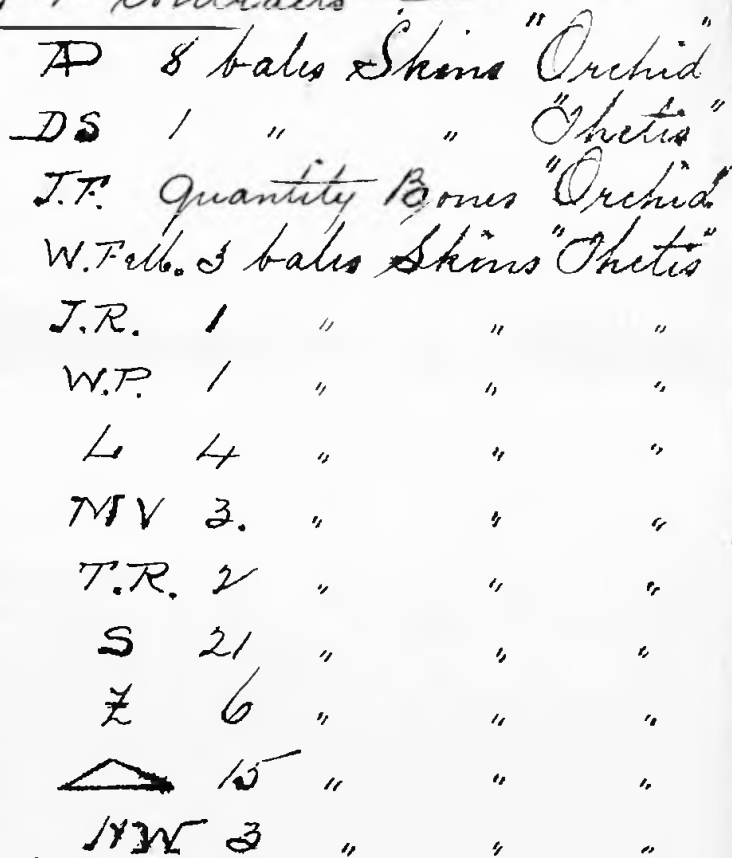 AP 8 bales Skins "Orchid"
DS 1 " " "Thetis"
J.F. Quantity Bones "Orchid"
W. 3 bales Skins "Thetis"
J.R. 1 " " "
W.P. 1 " " "
L 4 " " "
MV 3. " " "
T.R. 2 " " "
S 21 " " "
Z 6 " " "
15 " " "
3 " " "